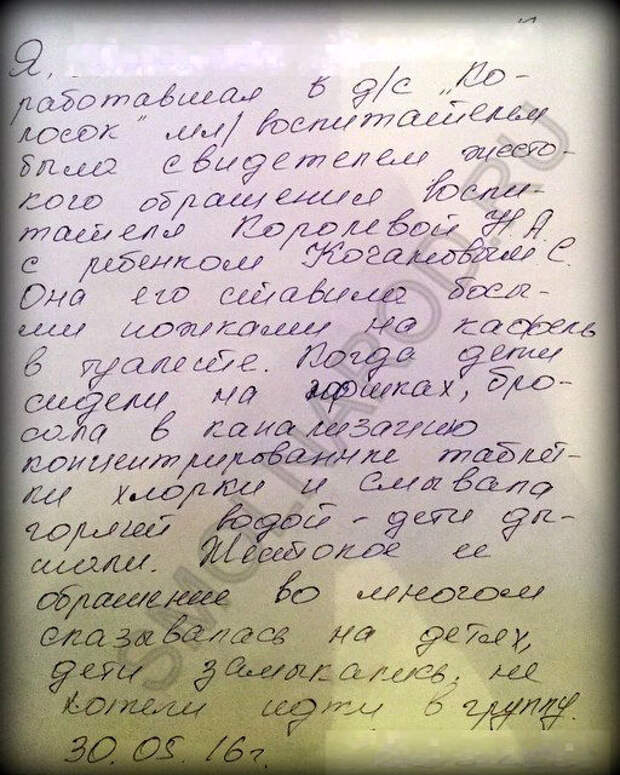 Я,
работавшая в д/с „Ко-
лосок" мл/воспитателем
была свидетелем жесто-
кого обращения воспи-
тателя Королевой Ж.А.
с ребенком Кочановым С.
Она его ставила босы-
ми ножками на кафель
в туалете. Когда дети
сидели на горшках, бро-
сала в канализацию
концентрированные таблет-
ки хлорки и смывала
горячей водой - дети ды-
шали. Жестокое ее
обращение во многом
сказывалась на детях,
дети замыкались, не
хотели идти в группу.
30.05.16г.
SMOLNAROD.RU